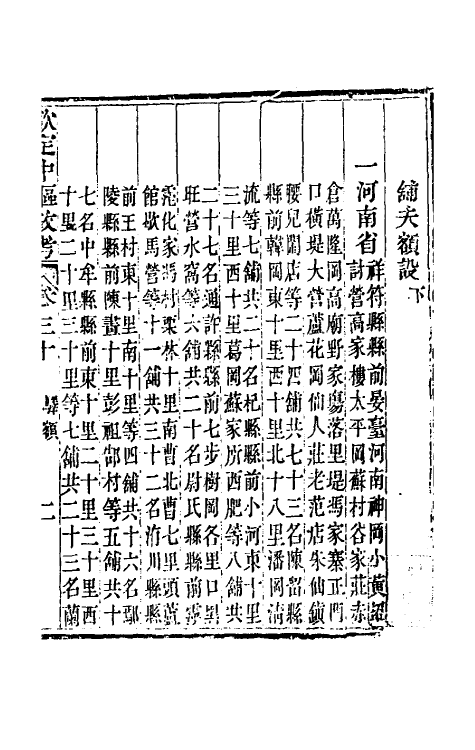 鋪夫額設下
一河南省祥符縣縣前晏臺河南神岡小黃招
討營高家樓太平岡蘇村谷家莊赤
倉萬隆岡高廟野家塲落里堤馮家寨正門
口橫堤大營蘆花岡仙人莊老范店朱仙鎮
腰兒鬧店等二十四鋪共七十三名陳留縣
縣前韓岡東十里西十里北十八里潘岡淸
流等七鋪共二十名杞縣縣前小河東十里
三十里西十里葛岡蘇家所西肥等八鋪共
二十七名通許縣縣前七步樹岡各里口吳
旺營水窩等六鋪共二十名尉氏縣縣前
蒞化家馮村栗林十里南曹北曹七里頭蘆
館歇馬營等十一鋪共三十二名洧川縣縣
前王村東十里南十里等四鋪共十六名鄢
陵縣縣前陳
十里彭祖郜村等五鋪共十
七名中牟縣縣前東十里二十里三十里西
十里二十里三十里等七鋪共二十三名蘭
欽定中樞政考 卷三十 驛額 二